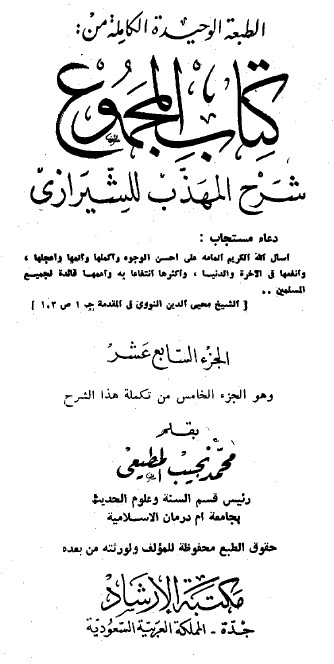 الطبعة الوحيدة الكاملة من :
كتاب المجموع
شرح المهذب للشيرازى
دعاء مستجاب :
أسأل الله الكريم اتمامه على أحسن الوجوه وأكملها وأتمها وأعجلها ،
وأنفعها فى الآخرة والدنيا ، وأكثرها انتفاعا به وأعمها فائدة لجميع
المسلمين ..
[ الشيخ محيى الدين النووى فى المقدمة جـ ١ ص ١٠٣ ]
الجزء السابع عشر
وهو الجزء الخامس من تكملة هذا الشرح
بقلم
محمد نجيب المطيعى
رئيس قسم السنة وعلوم الحديث
بجامعة أم درمان الاسلامية
حقوق الطبع محفوظة للمؤلف ولورثته من بعده
مكتبة الإرشاد
جدة - المملكة العربية السعودية